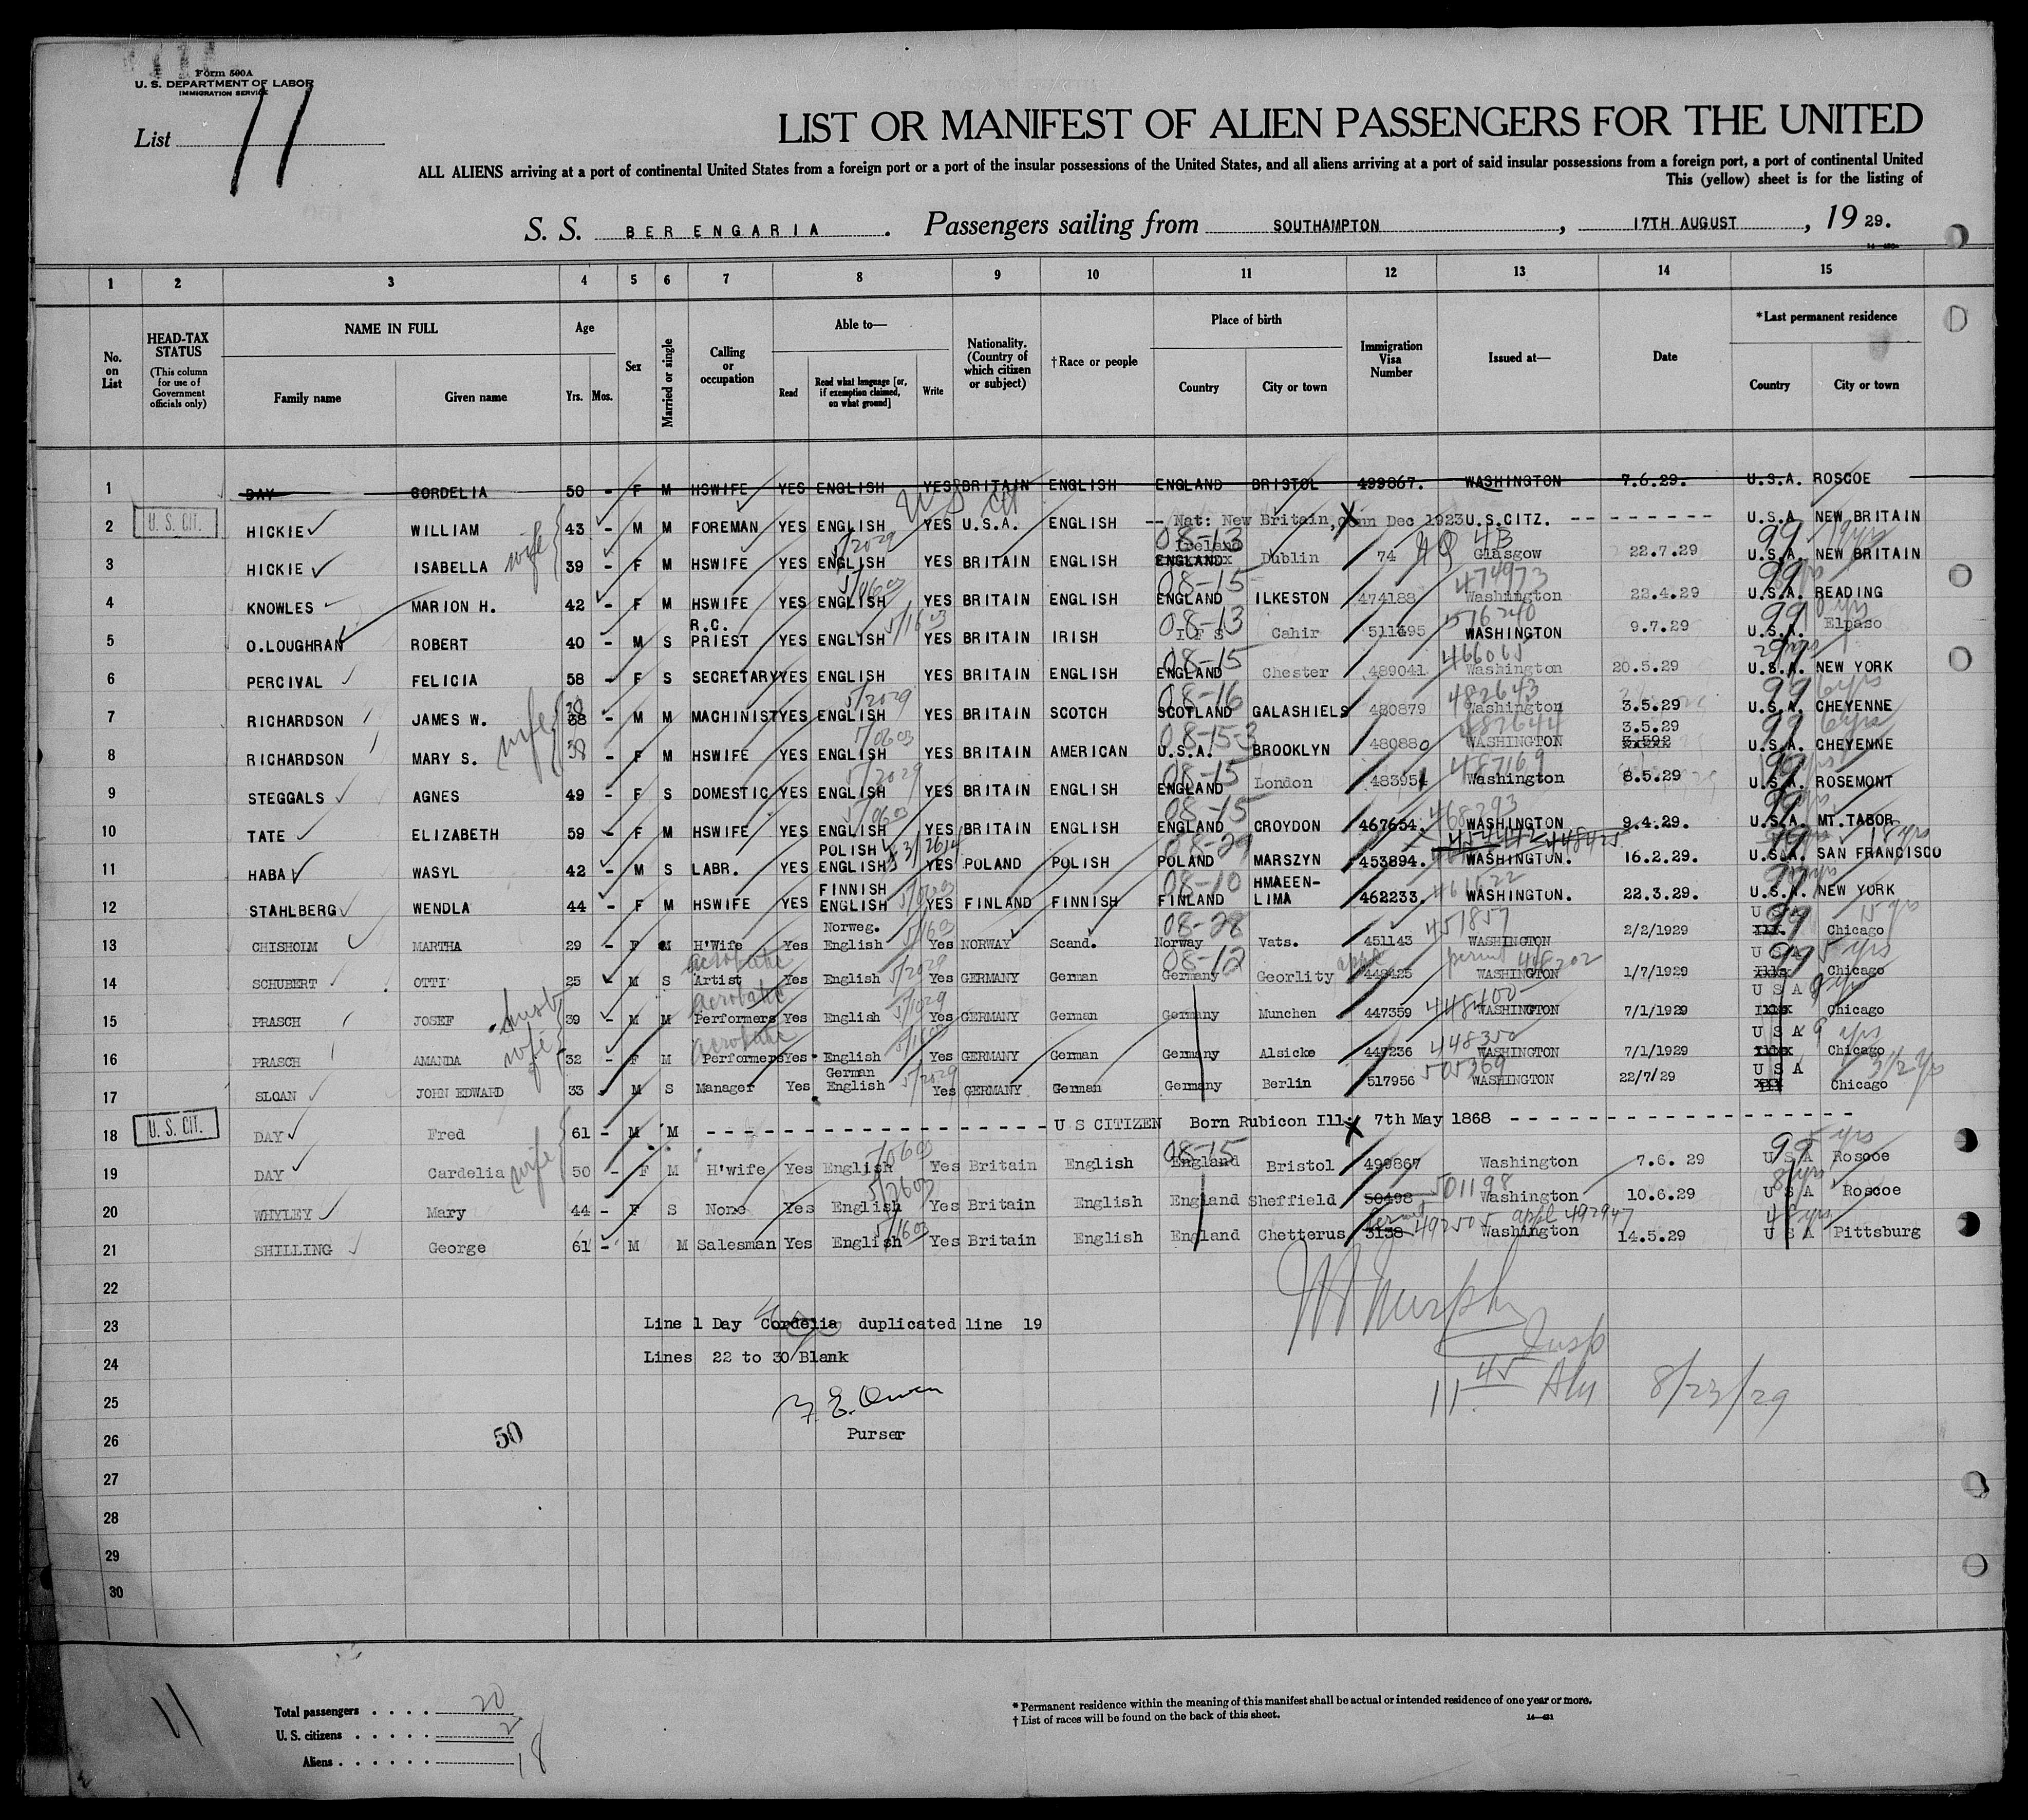 Form 500A
U. S. DEPARTMENT OF LABOR
IMMIGRATION SERVICE
List 11
LIST OR MANIFEST OF ALIEN PASSENGERS FOR THE UNITED
ALL ALIENS arriving at a port of continental United States from a foreign port or a port of the insular possessions of the United States, and all aliens arriving at a port of said insular possessions from a foreign port, a port of continental United
This (yellow) sheet is for the listing of
S. S. BERENGARIA . Passengers sailing from SOUTHAMPTON , 17TH AUGUST , 19 29.
1 2 3 4 5 6 7 8 9 10 11 12 13 14 15
No. on List
HEAD-TAX STATUS (This column for use of Government officials only)
NAME IN FULL
Family name Given name
Age
Yrs. Mos.
Sex
Married or single
Calling or occupation
Able to—
Read Read what language [or, if exemption claimed, on what ground] Write
Nationality. (Country of which citizen or subject)
†Race or people
Place of birth
Country City or town
Immigration Visa Number
Issued at—
Date
*Last permanent residence
Country City or town
1 DAY CORDELIA 50 - F M HSWIFE YES ENGLISH YES BRITAIN ENGLISH ENGLAND BRISTOL 499867. WASHINGTON 7.6.29. U.S.A. ROSCOE
US Cit
2 U. S. CIT. HICKIE WILLIAM 43 - M M FOREMAN YES ENGLISH YES U.S.A. ENGLISH -- Nat: New Britain, Conn Dec 1923 U.S.CITZ. - - - - - - - - U.S.A NEW BRITAIN
5/2029 08-13 Ireland 99 19yrs
3 HICKIE ISABELLA wife 39 - F M HSWIFE YES ENGLISH YES BRITAIN ENGLISH ENGLAND Dublin 74 NQ 4B Glasgow 22.7.29 U.S.A. NEW BRITAIN
5/0603 08-15 474973 99
4 KNOWLES MARION H. 42 - F M HSWIFE YES ENGLISH YES BRITAIN ENGLISH ENGLAND ILKESTON 474188 Washington 22.4.29 U.S.A. READING
R.C. 5/1603 08-13 516240 99 yrs
5 O.LOUGHRAN ROBERT 40 - M S PRIEST YES ENGLISH YES BRITAIN IRISH I F S Cahir 511495 WASHINGTON 9.7.29 U.S.A. Elpaso
08-15 466065
6 PERCIVAL FELICIA 58 - F S SECRETARY YES ENGLISH YES BRITAIN ENGLISH ENGLAND Chester 489041 Washington 20.5.29 U.S.A. NEW YORK
5/2029 08-16 482643 99 6yrs
7 RICHARDSON JAMES W. 38 - M M MACHINIST YES ENGLISH YES BRITAIN SCOTCH SCOTLAND GALASHIELS 480879 Washington 3.5.29 U.S.A. CHEYENNE
wife 5/0603 08-15-3 482644 3.5.29 99 6yrs
8 RICHARDSON MARY S. 38 - F M HSWIFE YES ENGLISH YES BRITAIN AMERICAN U.S.A. BROOKLYN 480880 WASHINGTON U.S.A. CHEYENNE
5/2029 08-15 487169
9 STEGGALS AGNES 49 - F S DOMESTIC YES ENGLISH YES BRITAIN ENGLISH ENGLAND London 483954 Washington 8.5.29 U.S.A. ROSEMONT
5/0603 08-15 468293
10 TATE ELIZABETH 59 - F M HSWIFE YES ENGLISH YES BRITAIN ENGLISH ENGLAND CROYDON 467654. WASHINGTON 9.4.29. U.S.A. MT.TABOR
POLISH 08-29 448425 18 yrs
11 HABA WASYL 42 - M S LABR. YES ENGLISH YES POLAND POLISH POLAND MARSZYN 453894. WASHINGTON. 16.2.29. U.S.A. SAN FRANCISCO
FINNISH 5/0603 08-10 HMAEEN-
12 STAHLBERG WENDLA 44 - F M HSWIFE YES ENGLISH YES FINLAND FINNISH FINLAND LIMA 462233. WASHINGTON. 22.3.29. U.S.A. NEW YORK
Norweg. 5/1603 08-28 451857 U S A 99 15 yrs
13 CHISHOLM MARTHA 29 - F M H'Wife Yes English Yes NORWAY Scand. Norway Vats. 451143 WASHINGTON 2/2/1929 Ill. Chicago
acrobatic 5/2029 08-12 appl permit 448202 U S A 99 5 yrs
14 SCHUBERT OTTI 25 M S Artist Yes English Yes GERMANY German Germany Georlity 448425 WASHINGTON 1/7/1929 Chicago
acrobatic 5/1029 448400 U S A yrs
15 PRASCH JOSEF husb 39 - M M Performers Yes English Yes GERMANY German Germany Munchen 447359 WASHINGTON 7/1/1929 Chicago
acrobatic 5/1603 448350 U S A 9 yrs
16 PRASCH AMANDA wife 32 - F M Performers Yes English Yes GERMANY German Germany Alsicke 447236 WASHINGTON 7/1/1929 Chicago
German 5/2029 505269 U S A 3 1/2 yrs
17 SLOAN JOHN EDWARD 33 M S Manager Yes English Yes GERMANY German Germany Berlin 517956 WASHINGTON 22/7/29 Chicago
18 U. S. CIT. DAY Fred 61 - M M - - - - - - - - - - - - - U S CITIZEN Born Rubicon Ill. 7th May 1868 - - - - - - - - - - - -
08-15 99 yrs
19 DAY Cardelia wife 50 - F M H'wife Yes English Yes Britain English England Bristol 499867 Washington 7.6. 29 U S A Roscoe
5/2603 501198 8 yrs
20 WHYLEY Mary 44 - F S None Yes English Yes Britain English England Sheffield 50498 Washington 10.6.29 U S A Roscoe
5/1603 Permit 492505 appl 492947 4 yrs
21 SHILLING George 61 - M M Salesman Yes English Yes Britain English England Chetterus 3138 Washington 14.5.29 U S A Pittsburg
22
23 Line 1 Day Cordelia duplicated line 19
24 Lines 22 to 30 Blank
Murphy
Insp
25 11 45 AM 8/23/29
Owen
26 50 Purser
27
28
29
30
11
Total passengers . . . . 20
U. S. citizens . . . . . 2
Aliens . . . . . . 18
* Permanent residence within the meaning of this manifest shall be actual or intended residence of one year or more.
† List of races will be found on the back of this sheet.
14—421